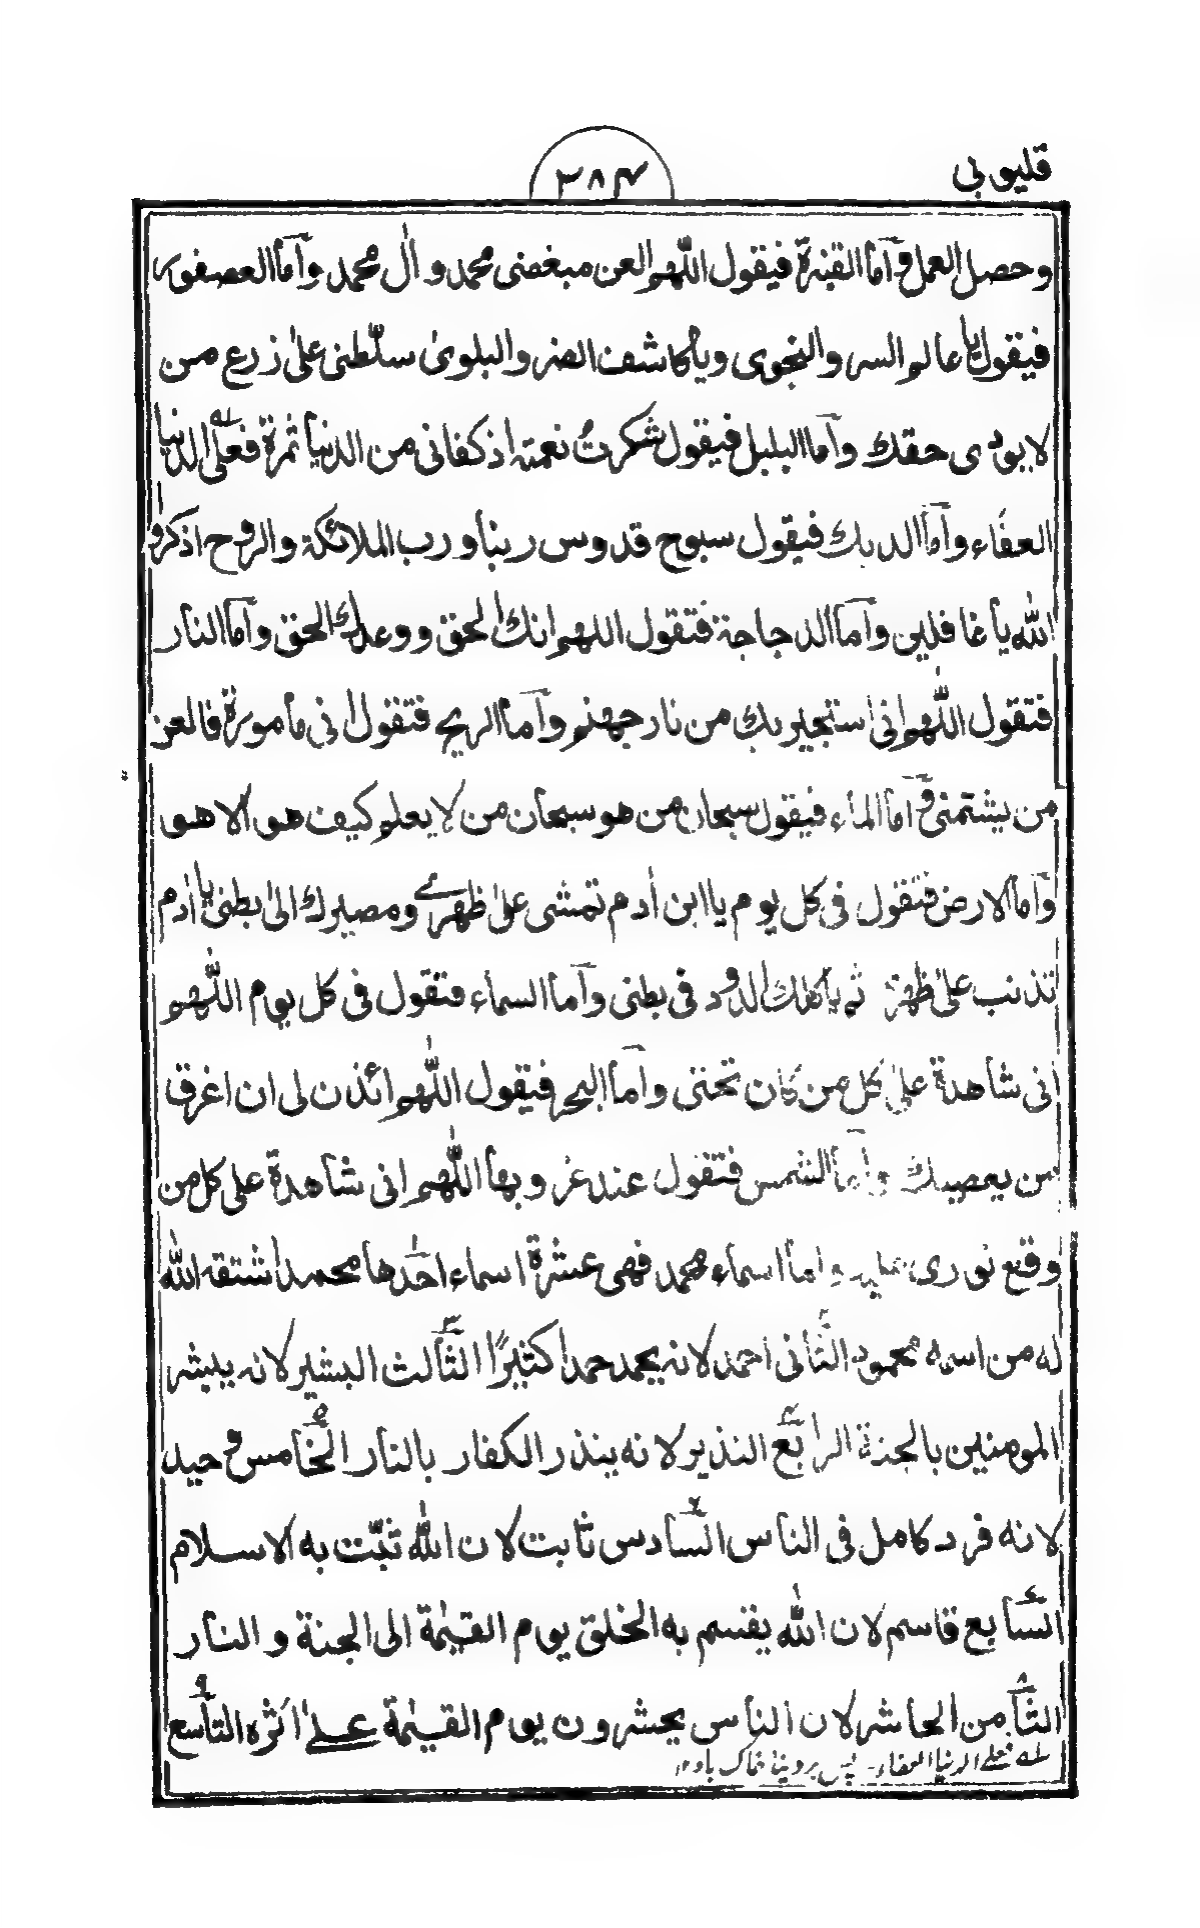 قليوبی
۲۸۴
وحصل العمل وآما القنبرة فيقول اللّٰهم العن مبغضی محمد و اٰل محمد وآما العصفور
فيقول يا عالم السر والنجوی ويا كاشف الضر والبلویٰ سلّطنی علیٰ زرع من
لا يودی حقك وآما البلبل فيقول شكرتُ نعمته اذ كفانی من الدنيا ثمرة فعلی الدنيا
العفاء وآما الديك فيقول سبوح قدوس ربنا ورب الملائكة والروح اذكروا
اللّٰه يا غافلين وآما الدجاجة فتقول اللهم انك الحق ووعدك الحق وآما النار
فتقول اللّٰهم انی استجير بك من نار جهنم وآما الريح فتقول انی مامورة فالعن
من يشتمنی وآما الماء فيقول سبحان من هو سبحان من لا يعلم كيف هو الا هو
وآما الارض فتقول فی كل يوم يا ابن اٰدم تمشی علیٰ ظهرے ومصيرك الیٰ بطنی يا اٰدم
تذنب علیٰ ظهری ثم ياكلك الدود فی بطنی وآما السماء فتقول فی كل يوم اللّٰهم
انی شاهدة علیٰ كل من كان تحتی وآما البحر فيقول اللّٰهم ائذن لی ان اغرق
من يعصيك وآما الشمس فتقول عند غروبها اللّٰهم انی شاهدة علی كل من
وقع نوری عليه واما اسماء محمد فهی عشرة اسماء احدها محمد اشتقه اللّٰه
له من اسمه محمود الثانی احمد لانه يحمد حمدا كثيرًا الثالث البشير لانه يبشر
المومنين بالجنة الرابع النذير لانه ينذر الكفار بالنار الخامس وحيد
لانه فرد كامل فی الناس السادس ثابت لان اللّٰه ثبّت به الاسلام
السابع قاسم لان اللّٰه يقسم به الخلق يوم القيٰمة الی الجنة و النار
الثامن الحاشر لان الناس يحشرون يوم القيٰمة علیٰ اثره التاسع
له فعلی الدنيا العفاء پس بر دنيا خاك باد ۱۲